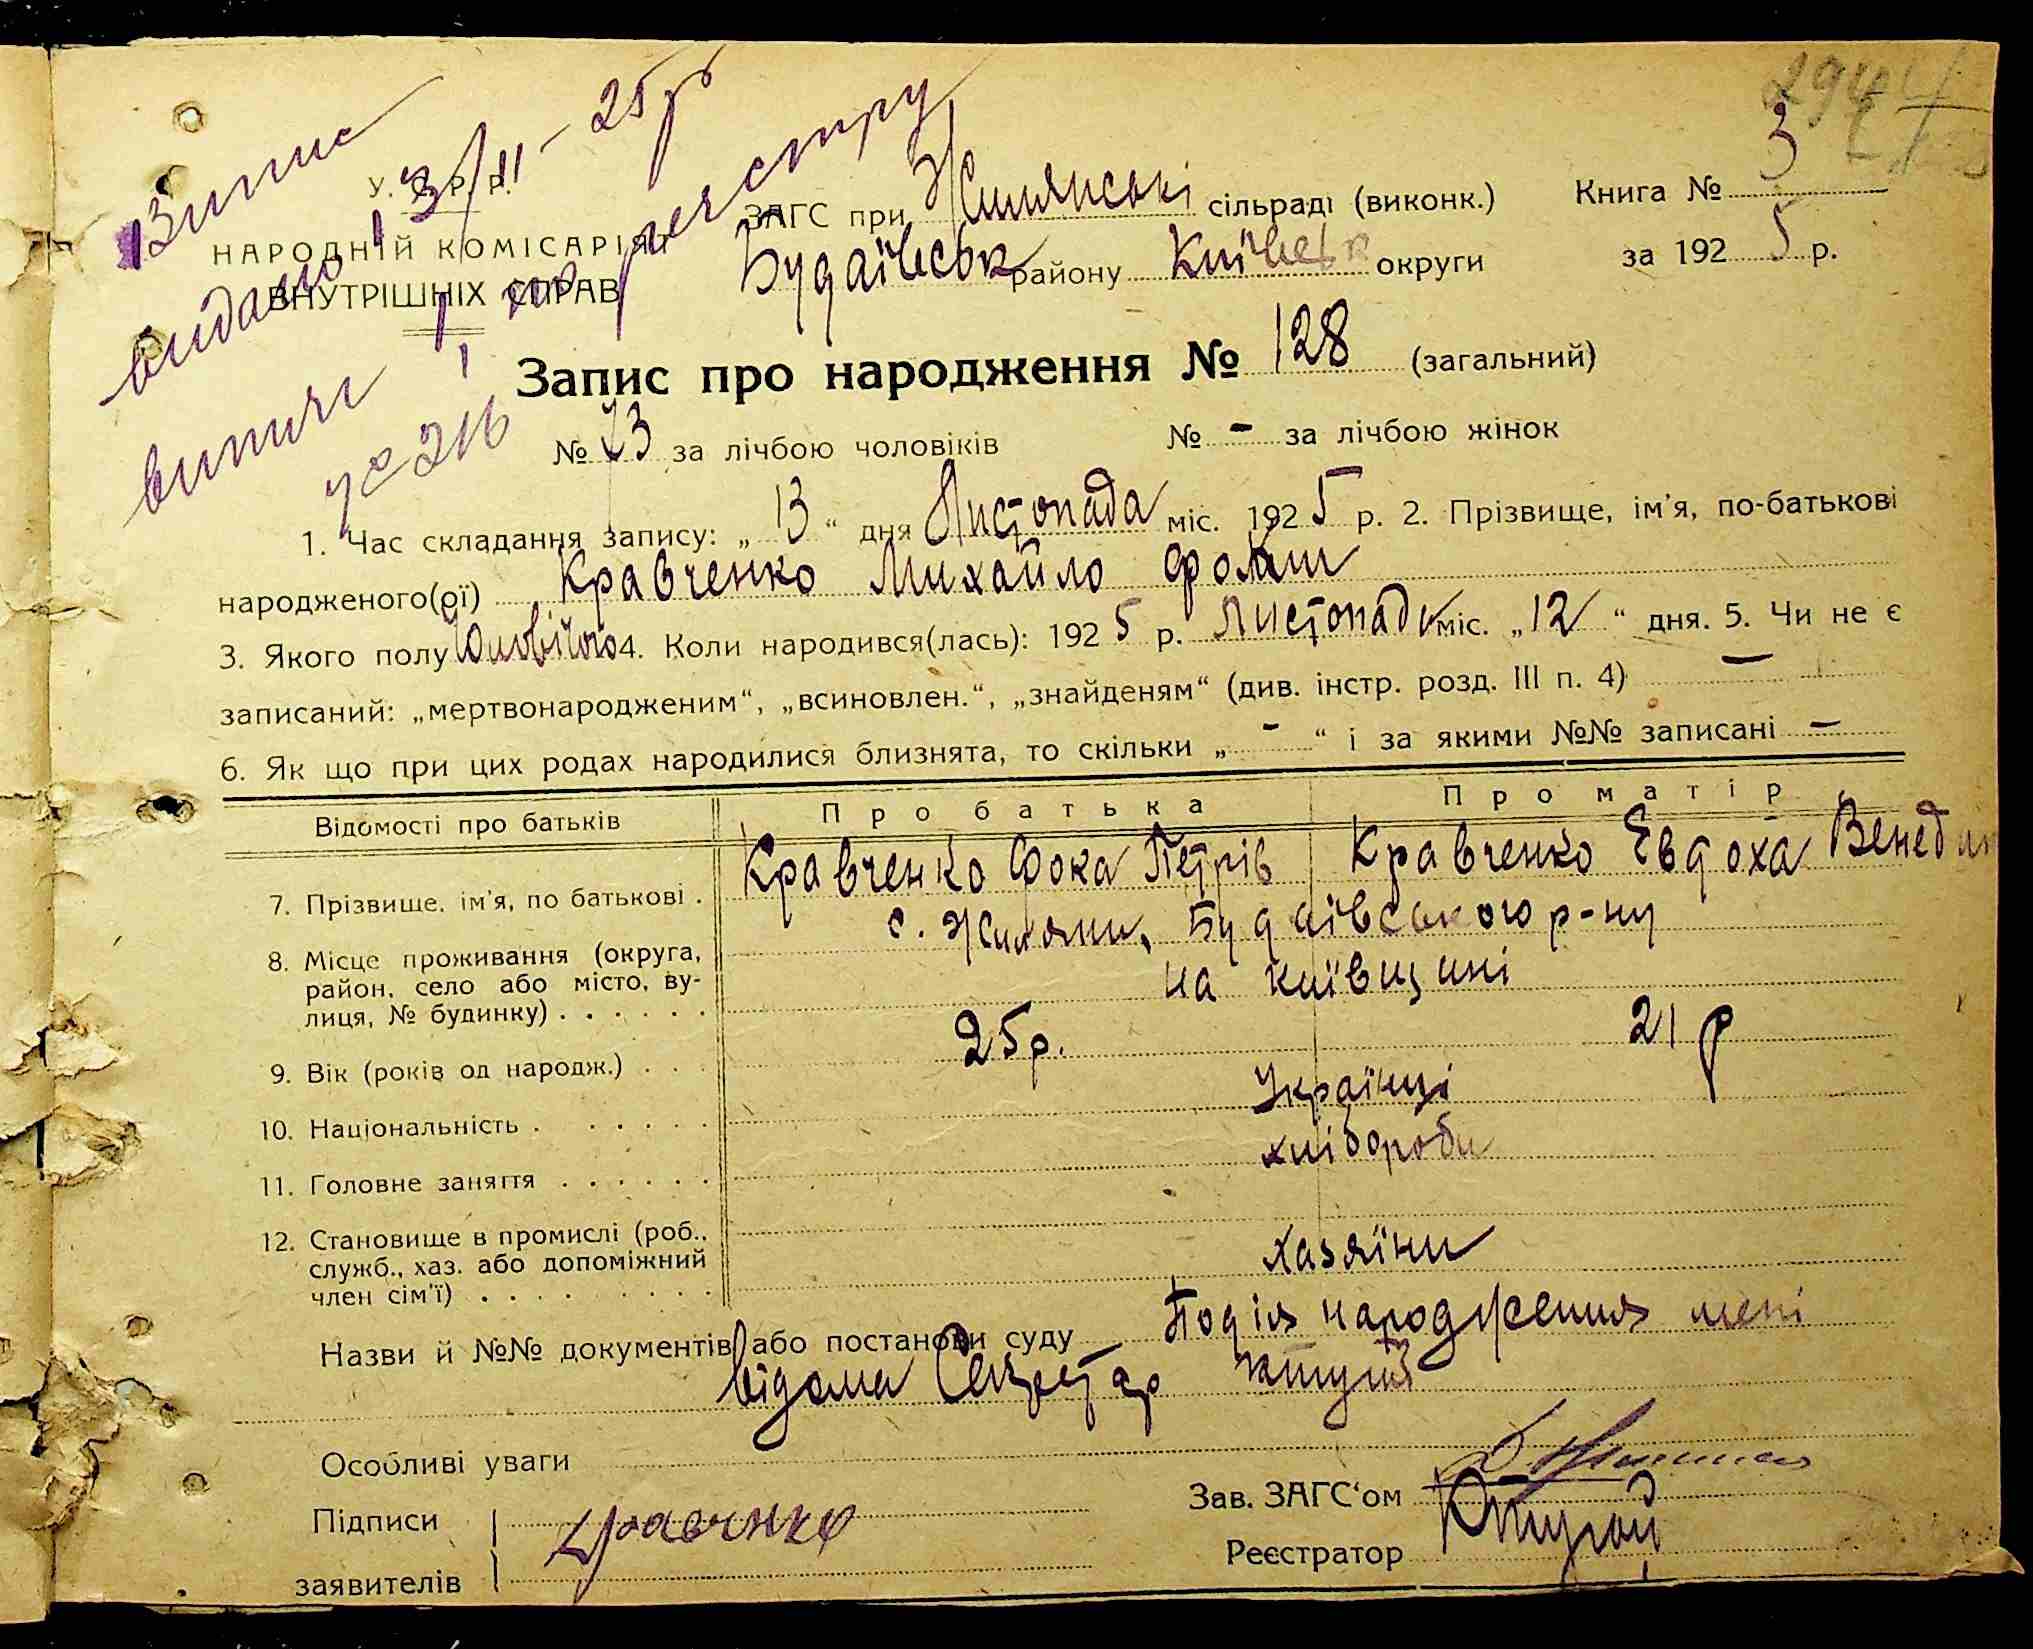 294
Зипис
видано 13/11 – 25р
виписі по реєстру
за 216
У. С. Р. Р.
НАРОДНІЙ КОМІСАРІЯТ
ВНУТРІШНІХ СПРАВ
ЗАГС при Жилянські сільраді (виконк.) Книга № 3
Будаївськ району Київськ округи за 192 5 р.
Запис про народження № 128 (загальний)
№ 73 за лічбою чоловіків № - за лічбою жінок
1. Час складання запису: „ 13 “ дня Листопада міс. 192 5 р. 2. Прізвище, ім'я, по-батькові
народженого(ої) Кравченко Михайло
3. Якого полу Чоловічого 4. Коли народився(лась): 192 5 р. Листопада міс. „ 12 “ дня. 5. Чи не є
записаний: „мертвонародженим“, „всиновлен.“, „знайденям“ (див. інстр. розд. III п. 4) —
6. Як що при цих родах народилися близнята, то скільки „ - “ і за якими №№ записані —
Відомості про батьків Про батька Про матір
7. Прізвище, ім'я, по батькові . Кравченко Фока Петрів Кравченко Евдоха Венед
8. Місце проживання (округа, район, село або місто, вулиця, № будинку) . . . . . . с. Жиляни, Будаївського р-ну
на Київщині
9. Вік (років од народж.) . . . 25р. 21 р
10. Національність . . . . . . Українці
11. Головне заняття . . . . . . хлібороби
12. Становище в промислі (роб., служб., хаз. або допоміжний член сім'ї) . . . . . . . . . хазяїни
Назви й №№ документів або постанови суду Подія народження мені
відома Секретар
Особливі уваги
Зав. ЗАГС'ом
Підписи
заявителів Кравченко
Реєстратор